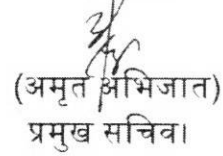 (अमृत अभिजात)
प्रमुख सचिव।